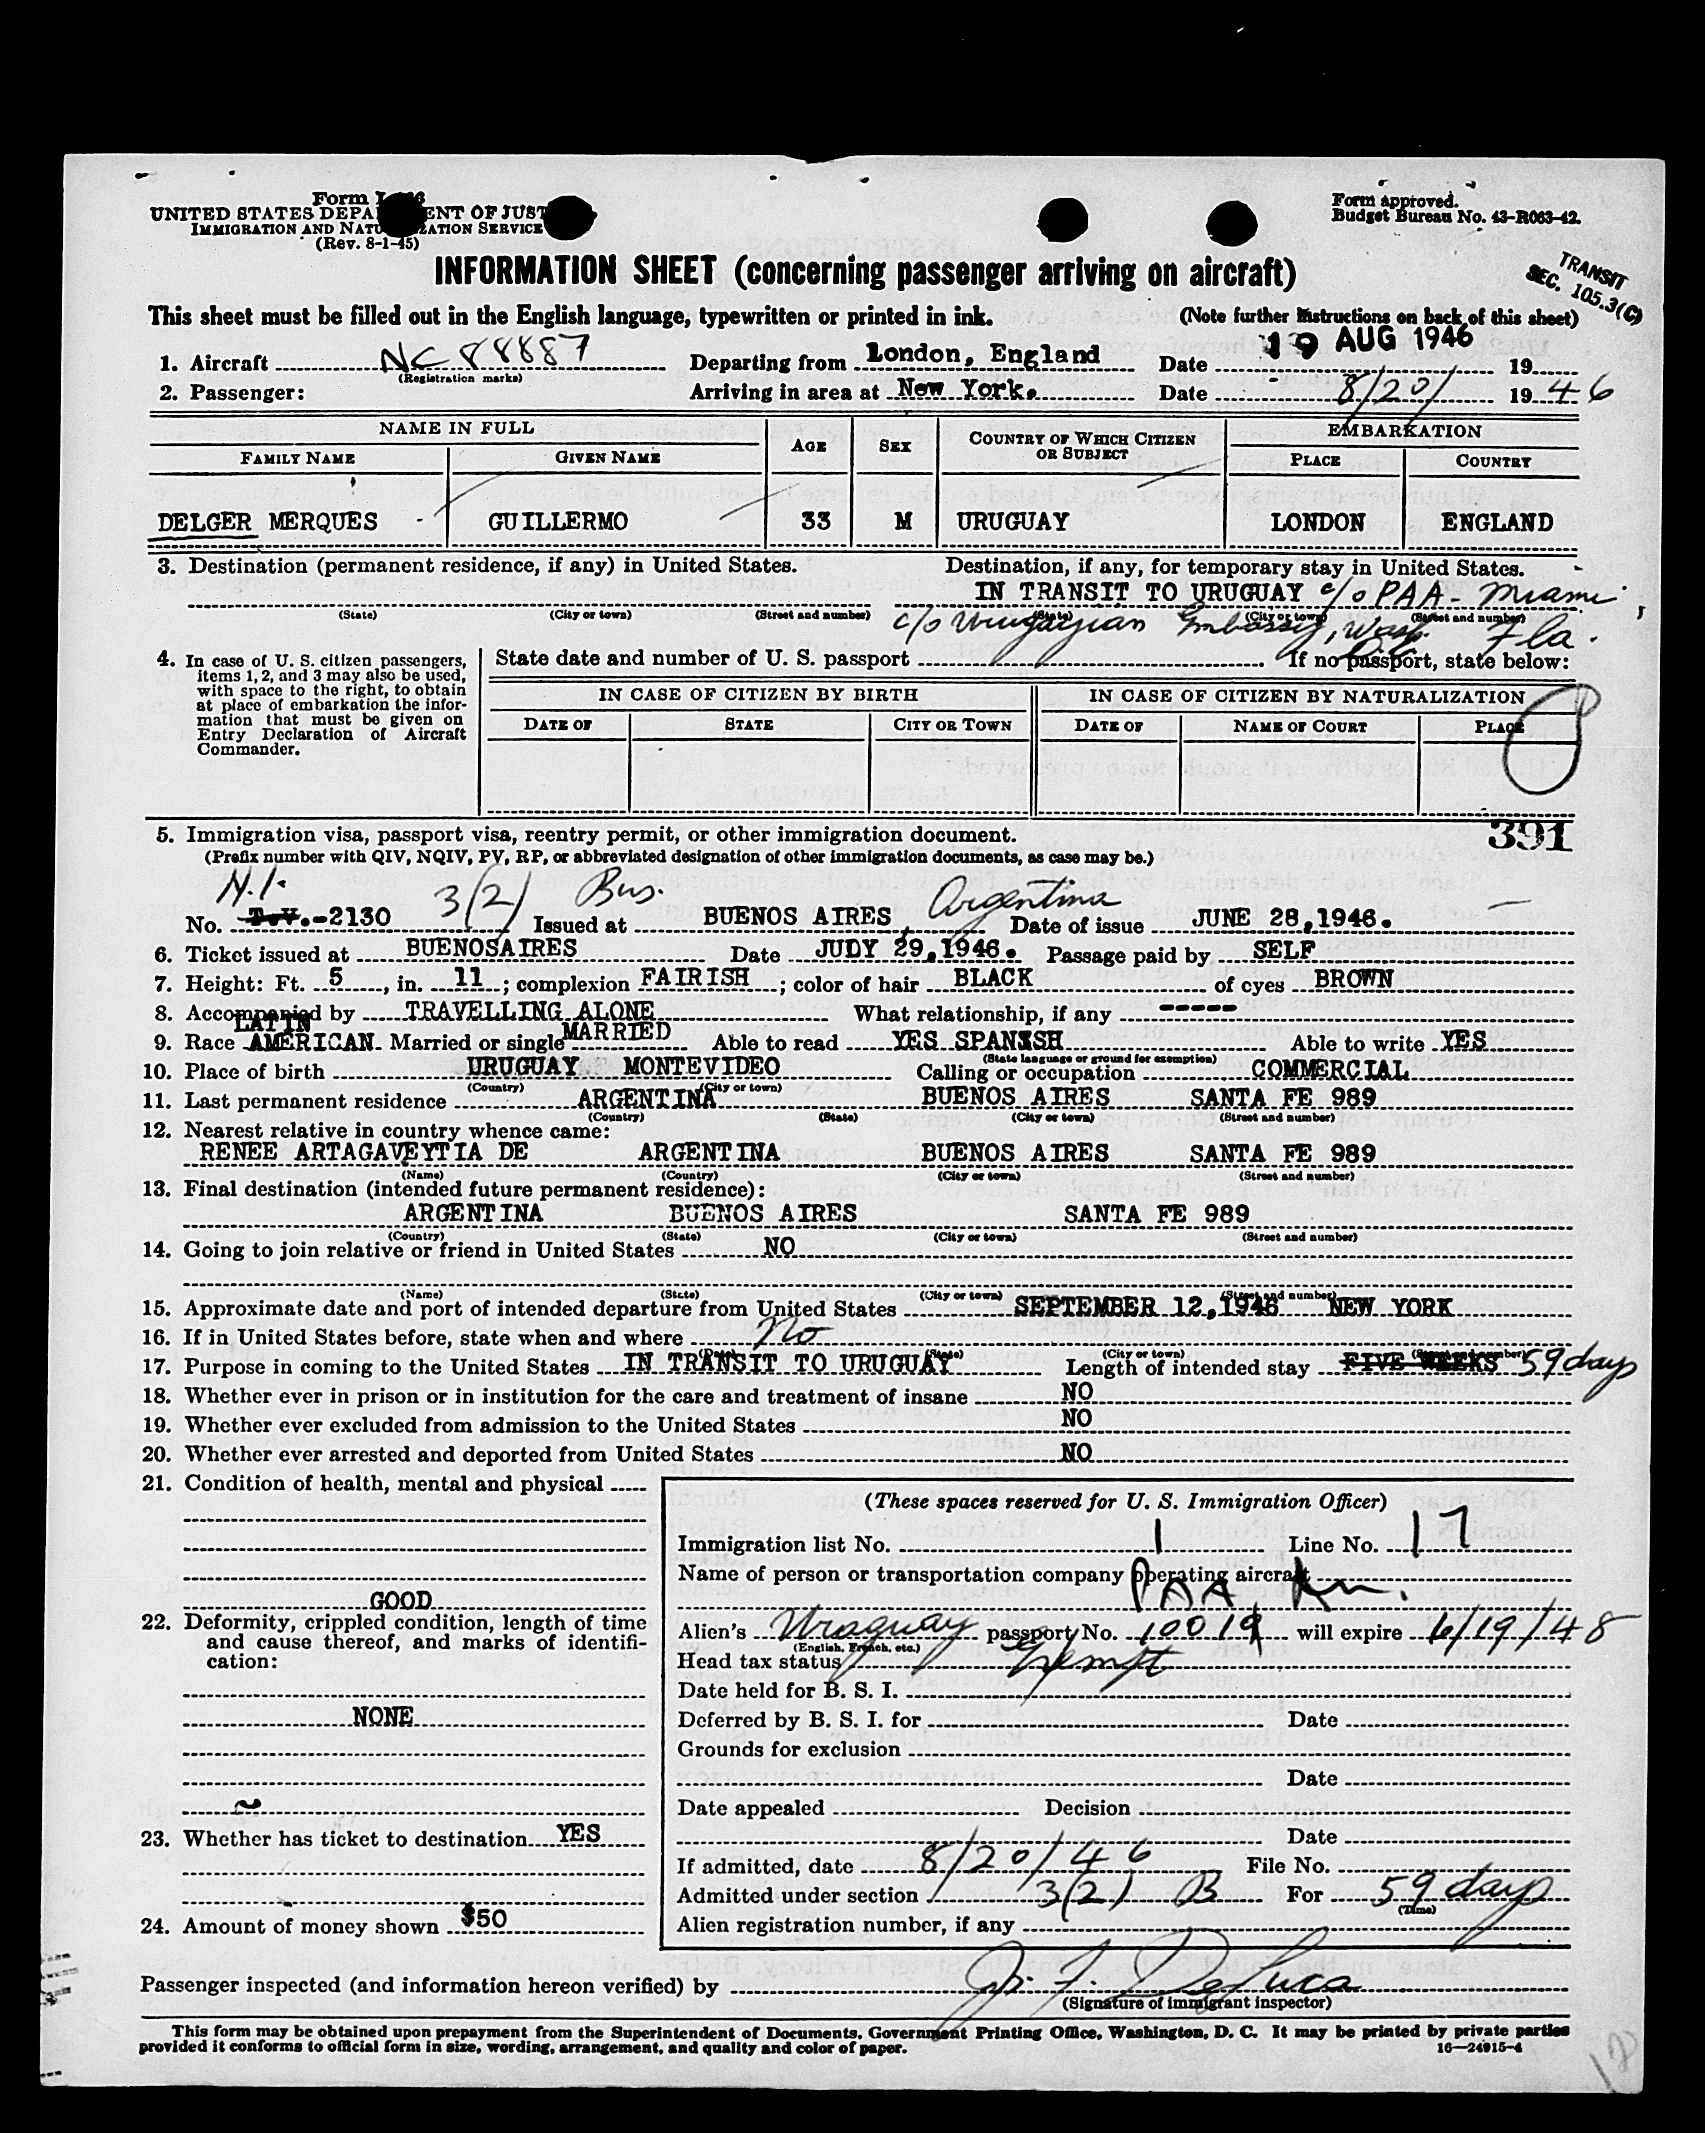 Form I-466
UNITED STATES DEPARTMENT OF JUSTICE
IMMIGRATION AND NATURALIZATION SERVICE
(Rev. 8-1-45)
Form approved.
Budget Bureau No. 43-R063-42.
INFORMATION SHEET (concerning passenger arriving on aircraft)
TRANSIT
SEC. 105.3(C)
This sheet must be filled out in the English language, typewritten or printed in ink. (Note further instructions on back of this sheet)
1. Aircraft NC 88887 Departing from London, England Date 19 AUG 1946 19
(Registration marks)
2. Passenger: Arriving in area at New York. Date 8/20/ 1946
NAME IN FULL AGE SEX COUNTRY OF WHICH CITIZEN OR SUBJECT EMBARKATION
FAMILY NAME GIVEN NAME PLACE COUNTRY
DELGER MERQUES GUILLERMO 33 M URUGUAY LONDON ENGLAND
3. Destination (permanent residence, if any) in United States. Destination, if any, for temporary stay in United States.
IN TRANSIT TO URUGUAY c/o PAA - Miami,
(State) (City or town) (Street and number) (State) (City or town) (Street and number)
c/o Uruguayian Embassy, Wash. D.C. Fla.
4. In case of U. S. citizen passengers,
items 1, 2, and 3 may also be used,
with space to the right, to obtain
at place of embarkation the infor-
mation that must be given on
Entry Declaration of Aircraft
Commander.
State date and number of U. S. passport If no passport, state below:
IN CASE OF CITIZEN BY BIRTH IN CASE OF CITIZEN BY NATURALIZATION
DATE OF STATE CITY OR TOWN DATE OF NAME OF COURT PLACE
391
5. Immigration visa, passport visa, reentry permit, or other immigration document.
(Prefix number with QIV, NQIV, PV, RP, or abbreviated designation of other immigration documents, as case may be.)
N.I. 3(2) Bus. Argentina
No. T.V.-2130 Issued at BUENOS AIRES, Date of issue JUNE 28,1946.
6. Ticket issued at BUENOSAIRES Date JUDY 29,1946. Passage paid by SELF
7. Height: Ft. 5, in. 11; complexion FAIRISH; color of hair BLACK of eyes BROWN
8. Accompanied by TRAVELLING ALONE What relationship, if any -----
9. Race LATIN AMERICAN Married or single MARRIED Able to read YES SPANISH Able to write YES
(State language or ground for exemption)
10. Place of birth URUGUAY MONTEVIDEO Calling or occupation COMMERCIAL
(Country) (City or town)
11. Last permanent residence ARGENTINA BUENOS AIRES SANTA FE 989
(Country) (State) (City or town) (Street and number)
12. Nearest relative in country whence came:
RENEE ARTAGAVEYTIA DE ARGENTINA BUENOS AIRES SANTA FE 989
(Name) (Country) (City or town) (Street and number)
13. Final destination (intended future permanent residence):
ARGENTINA BUENOS AIRES SANTA FE 989
(Country) (State) (City or town) (Street and number)
14. Going to join relative or friend in United States NO
(Name) (State) (City or town) (Street and number)
15. Approximate date and port of intended departure from United States SEPTEMBER 12,1946 NEW YORK
16. If in United States before, state when and where No
(Date) (State) (City or town) (Street and number)
17. Purpose in coming to the United States IN TRANSIT TO URUGUAY Length of intended stay FIVE WEEKS 59 days
18. Whether ever in prison or in institution for the care and treatment of insane NO
19. Whether ever excluded from admission to the United States NO
20. Whether ever arrested and deported from United States NO
21. Condition of health, mental and physical
GOOD
22. Deformity, crippled condition, length of time
and cause thereof, and marks of identifi-
cation:
NONE
23. Whether has ticket to destination YES
24. Amount of money shown $50
(These spaces reserved for U. S. Immigration Officer)
Immigration list No. 1 Line No. 17
Name of person or transportation company operating aircraft
PAA
Alien's Uruguay passport No. 10019 will expire 6/19/48
(English, French, etc.)
Head tax status Exempt
Date held for B. S. I.
Deferred by B. S. I. for Date
Grounds for exclusion
Date
Date appealed Decision
Date
If admitted, date 8/20/46 File No.
Admitted under section 3(2) B For 59 days
(Time)
Alien registration number, if any
Passenger inspected (and information hereon verified) by
(Signature of immigrant inspector)
This form may be obtained upon prepayment from the Superintendent of Documents, Government Printing Office, Washington, D. C. It may be printed by private parties
provided it conforms to official form in size, wording, arrangement, and quality and color of paper. 16—24915-4